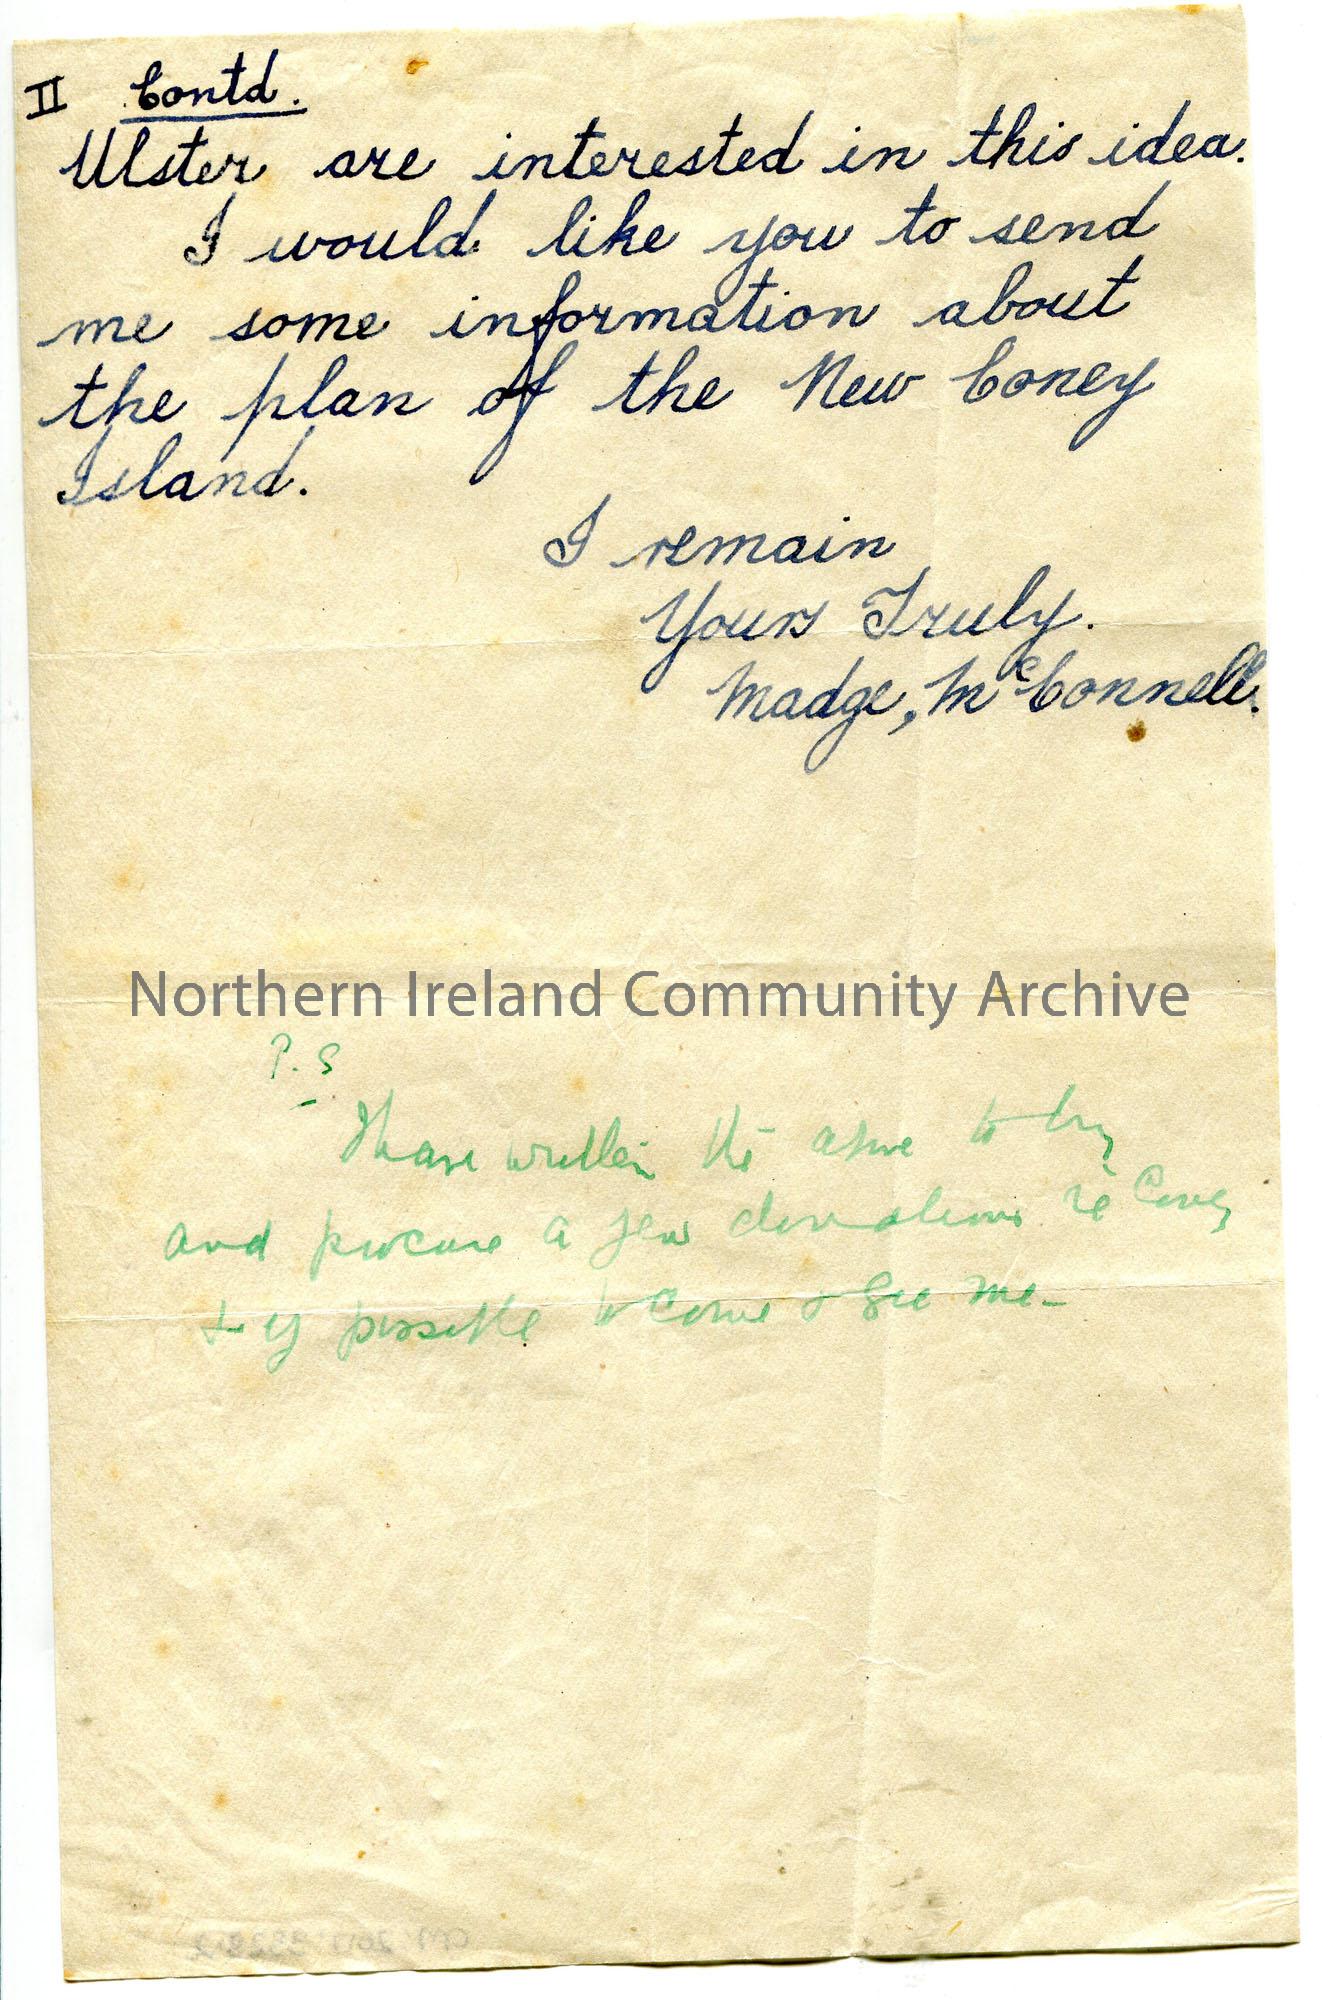 II Contd.
Ulster are interested in this idea.
I would like you to send
me some information about
the plan of the New Coney
Island.
I remain
Yours Truly.
Madge, McConnell.
Northern Ireland Community Archive
P.S
I have written the above to try
and procure a few donations re Coney
& if possible to come & see me-